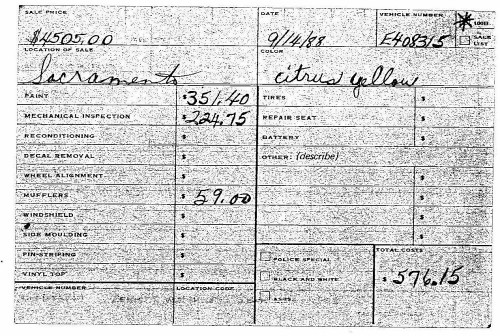 SALE PRICE DATE VEHICLE NUMBER
$4505.00 9/14/88 E408315 SALE LIST
LOCATION OF SALE COLOR
Sacramento citrus yellow
PAINT $351.40 TIRES $
MECHANICAL INSPECTION $224.75 REPAIR SEAT $
RECONDITIONING $ BATTERY $
DECAL REMOVAL $ OTHER: (describe)
WHEEL ALIGNMENT $ $
MUFFLERS $ 59.00 $
WINDSHIELD $ $
SIDE MOULDING $ $
PIN-STRIPING $ POLICE SPECIAL TOTAL COSTS
VINYL TOP $ BLACK AND WHITE $ 576.15
VEHICLE NUMBER LOCATION CODE